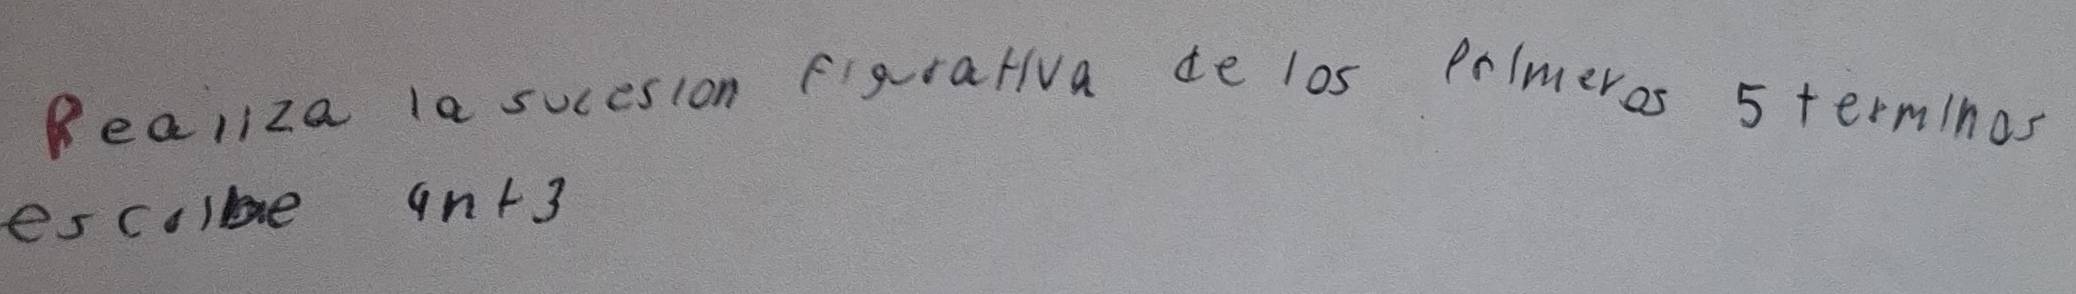 Realiza la sucesion figurativa de los primeros 5 terminos
escribe 4n+3